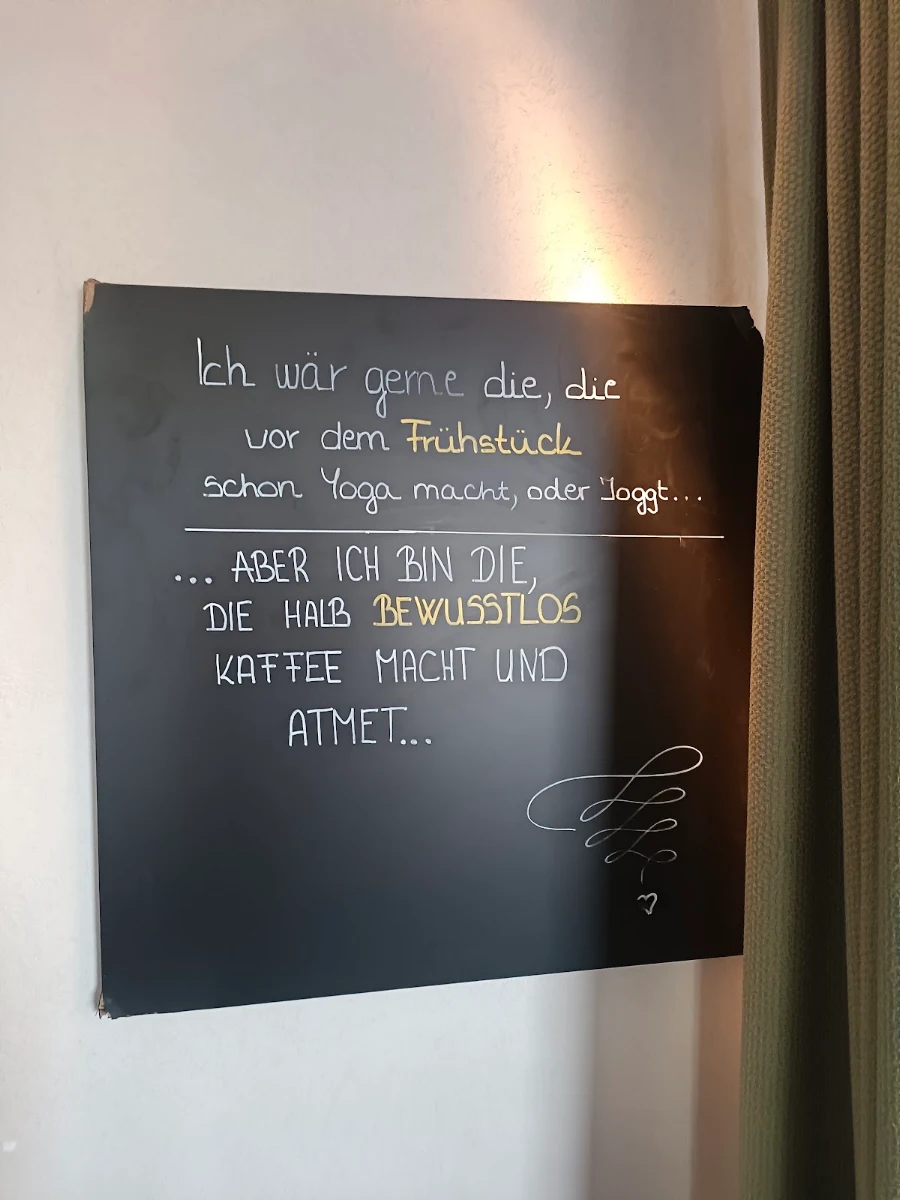 Ich wär gerne die, die
vor dem Frühstück
schon Yoga macht, oder Joggt...
... ABER ICH BIN DIE,
DIE HALB BEWUSSTLOS
KAFFEE MACHT UND
ATMET...